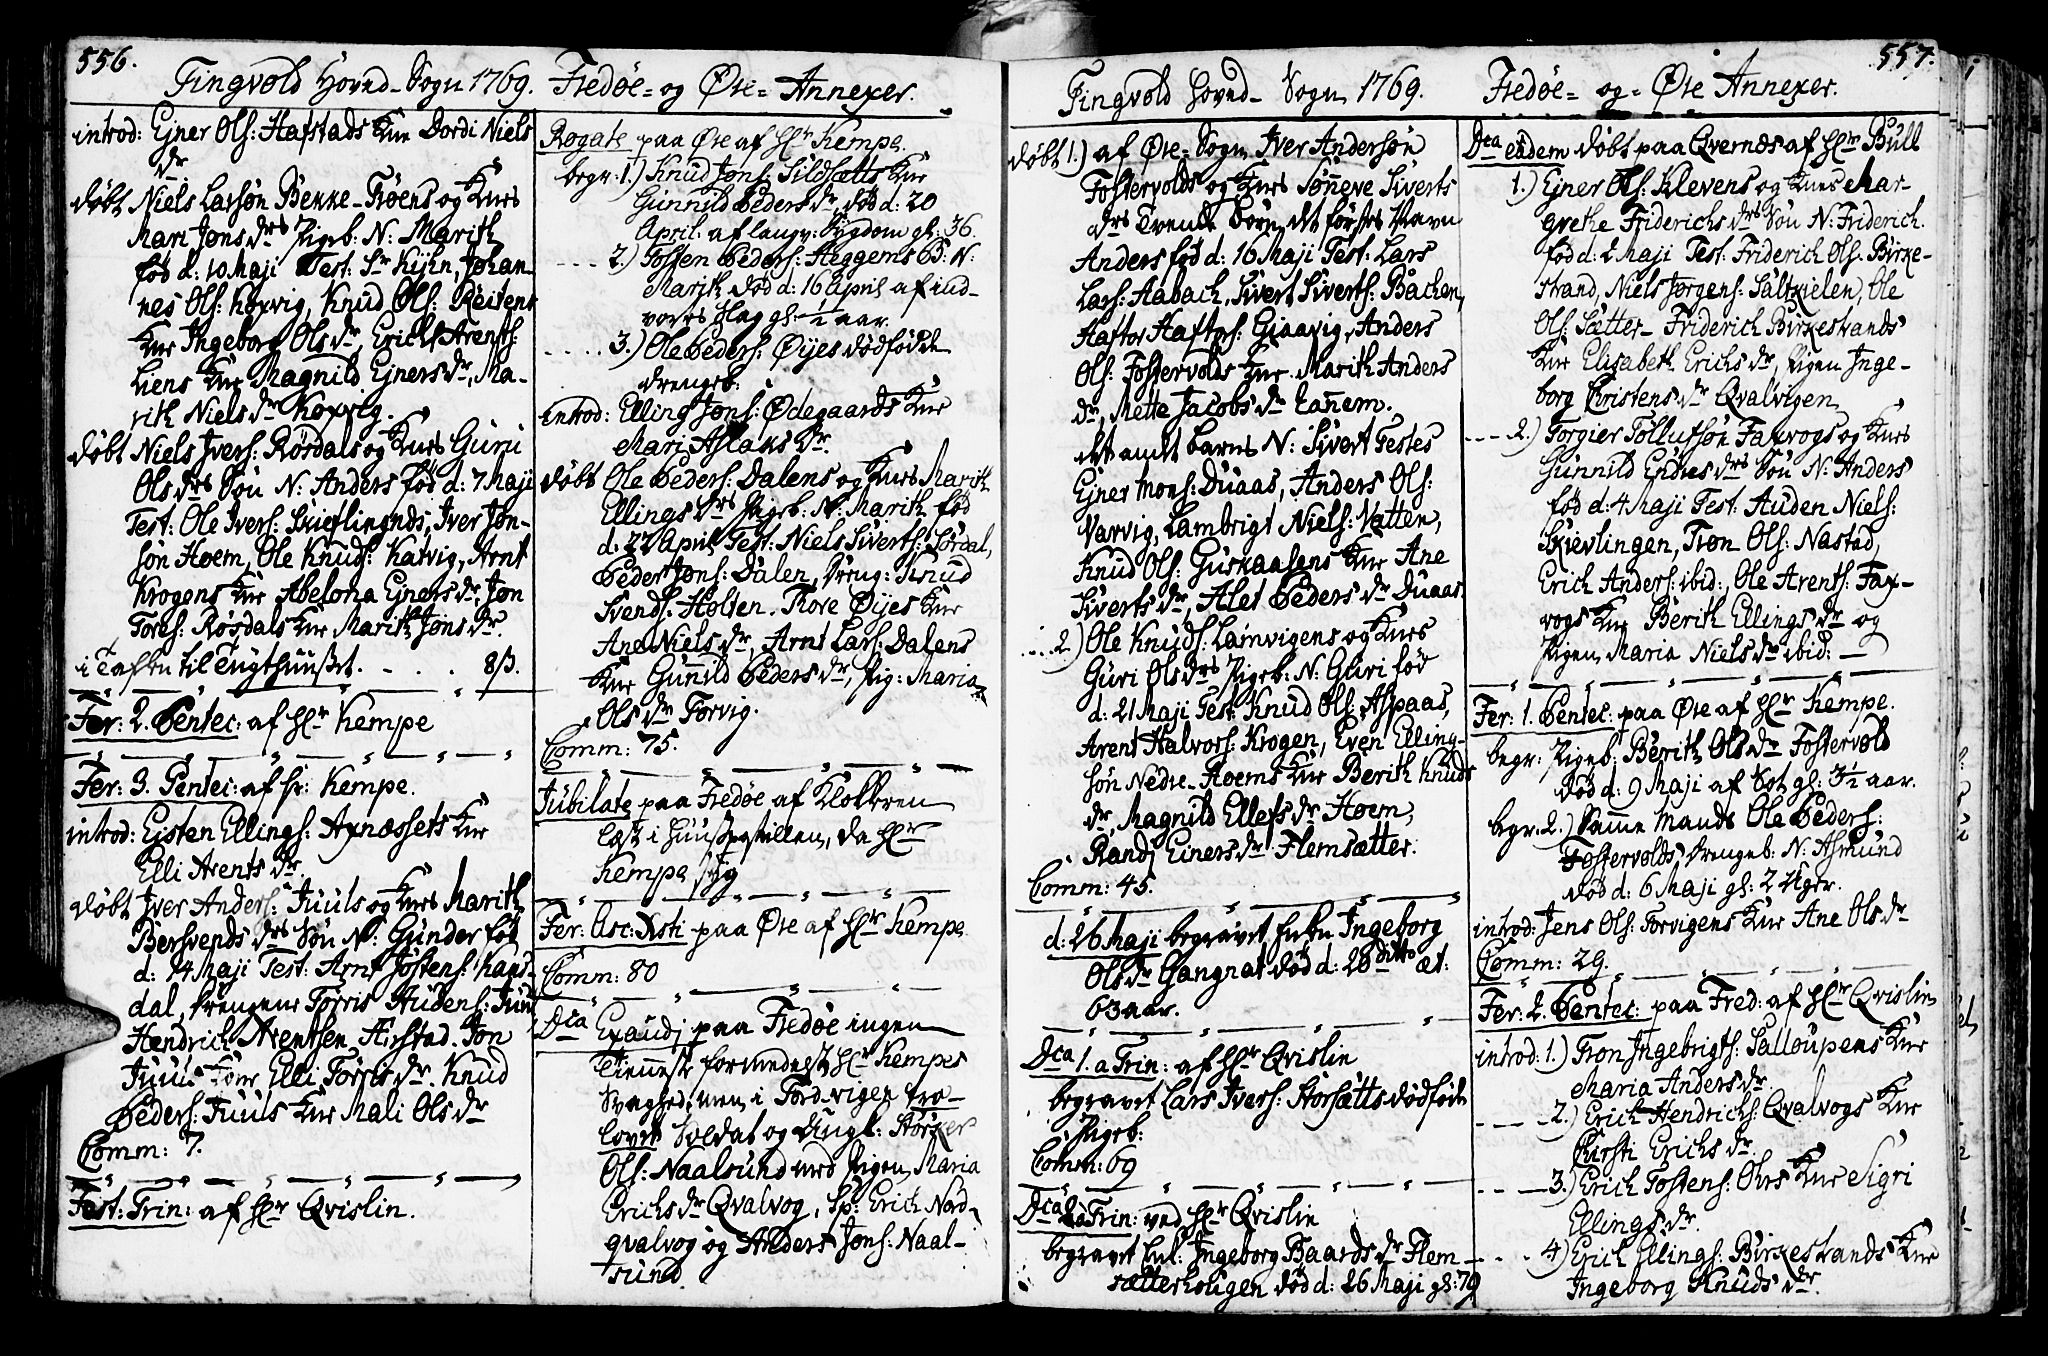 556.
Tingvold Hoved-Sogn 1769. Fredøe- og Øre- Annexer.
introd: Ejner Ols: Hafstads Kne Dordi Niels
dr
døbt Niels Larsøn Bekke-Trøens og Knes
Mari Jons drs Pigeb: N: Marith
fød d: 10 Maji Test: Sr Kijhn, Johan-
nes Ols: Koxvig, Knud Ols: Reitens
Kne Ingeborg Ols dr, Erich Arents:
Liens Kne Magnild Ejners dr, Ma-
rith Niels dr Koxvig.
døbt Niels Ivers: Rørdals og Knes Guri
Ols drs Søn N: Anders fød d: 7 Maji
Test: Ole Ivers: Skieflingnds, Iver Jon-
søn Hoem, Ole Knuds: Katvig, Arnt
Krogens Kne Abelona Ejners dr, Jon
Tores: Røsdals Kne Marith Jons dr.
i Taflen til Tugthuuset. - . . . 8 ß.
Fer: 2. Pentec: af Hr Kempe
Fer: 3. Pentec: af Hr: Kempe.
introd: Eisten Ellings: Axnæssets Kne
Elli Arents dr.
døbt Iver Anders: Juuls og Knes Marith
Bersvends drs Søn N: Gunder fød
d: 14 Maji Test: Arnt Jostens: Hans-
dal, Drengene Torris Audens: Juul
Hendrich Arentsen Aarstad. Jon
Juuls Kone Elli Torris dr. Knud
Peders: Juuls Kne Mali Ols dr
Comm: 7.
Fest: Trin: af Hr Qvislin.
Rogate paa Øre af Hr Kempe.
begr: 1.) Knud Jons: Sildsætts Kne
Gunnild Peders dr død d: 20
April: af langv: Sygdom gl: 36.
2.) Tosten Peders: Heggems B: N:
Marith død d: 16 April af ind-
vortes Slag gl: ½ aar.
3.) Ole Peders: Øyes dødfødde
drengeb:
introd: Elling Jons: Ødegaards Kne
Mari Aslaks dr.
døbt Ole Peders: Dalens og Knes Marith
Ellings drs Pigeb: N: Marith fød
d: 22 April Test: Niels Siverts: Sørdal,
Peder Jons: Dalen, Dreng: Knud
Svends: Holsen. Tore Øyes Kne
Ane Niels dr, Arnt Lars: Dalens
Kne Gunnild Peders dr, Pig: Maria
Ols dr Torvig.
Comm: 75.
Jubilate paa Fredøe af Klokkeren
læst i Huuspostillen, da Hr
Kempe syg
Fer: Asc: Xsti paa Øre af Hr Kempe
Comm: 80
Dca Exaudj paa Fredøe ingen
Tienneste formedelst Hr Kempes
Svaghed, men i Tordvigen tro-
lovet Soldat og Ungk: Størker
Ols: Naalsund med Pigen Maria
Erichs dr Qvalvog, Sp: Erich Nord-
qvalvog og Anders Jons: Naal-
sund.
557.
Tingvold Hoved- Sogn 1769. Fredøe- og- Øre Annexer.
døbt 1.) af Øre-Sogn Iver Andersøn
Fostervolds og Knes Sønneve Siverts
drs Tvende Børn, det førstes Navn
Anders fød d: 16 Maji Test: Lars
Lars: Aabach, Sivert Siverts: Bachen,
Haftor Haftors: Giaavig, Anders
Ols: Fostervolds Kne. Marith Anders
dr, Mette Jacobs dr Tannem.
det andt barns N: Sivert Testes
Ejner Mons: Duaas, Anders Ols:
Varvig, Lambrigt Niels: Vatten,
Knud Ols: Guskaalens Kne Ane
Siverts dr, Alet Peders dr Duaas.
2.) Ole Knuds: Lamvigens og Knes
Guri Ols drs Pigeb: N: Guri fød
d: 21 Maji Test: Knud Ols: Aspaas,
Arent Halvors: Krogen, Even Elling-
søn Nedre-Hoems Kne Berith Knuds
dr, Magnild Ellefs dr Hoem,
Randj Einers dr Flemsætter.
Comm: 45.
d: 26 Maji begravet Enken Ingeborg
Ols dr Gangnat død d: 20 ditto æt:
63 aar.
Dca 1. a Trin: af Hr Qvislin
begravet Lars Ivers: Storsætts dødfødte
Pigeb:
Comm: 69
Dca 2 a Trin: ved Hr Qvislin
begravet Enk: Ingeborg Baards dr Flem-
sætterboligen død d: 26 Maji gl: 79
Dca eadem døbt paa Qvernæs af Hr Bull
1.) Ejner Ols: Klevens og Knes Mar-
grethe Friderichs drs Søn N: Friderich.
fød d: 2 Maji Test: Friderich Ols: Birke-
strand, Niels Jørgens: Saltkielen, Ole
Ols: Sætter- Friderich Birkestrands
Kne Elisabeth Erichs dr, Pigen Inge-
borg Christens dr Qvalvigen
2.) Torgier Tollufsøn Faxvogs og Knes
Gunnild Endres drs Søn N: Anders
fød d: 4 Maji Test: Auden Niels:
Skievlingen, Tron Ols: Nastad,
Erich Anders: ibid:, Ole Arents: Fax-
vogs Kne Berith Ellings dr og
Pigen Maria Niels dr ibid:
Fer: 1. Pentec: paa Øre af Hr Kempe.
begr: Pigeb: Berith Ols dr Fostervold
død d: 9 Maji af Sot gl: 3½ aar.
begr: 2.) Samme Mands Ole Peders:
Fostervolds drengeb: N: Asmund
død d: 6 Maji gl: 2 Uger.
introd: Jens Ols: Torvigens Kne Ane Ols dr
Comm: 29.
Fer: 2. Pentec: paa Fred: af Hr Qvislin
introd: 1.) Tron Ingebrigts: Salloupens Kne
Maria Anders dr.
2.) Erich Hendrichs: Qvalvogs Kne
Kirsti Erichs dr.
3.) Erich Tostens: Ohrs Kne Sigri
Ellings dr.
4) Erich Ellings: Birkestrands Kne
Ingeborg Knuds dr.